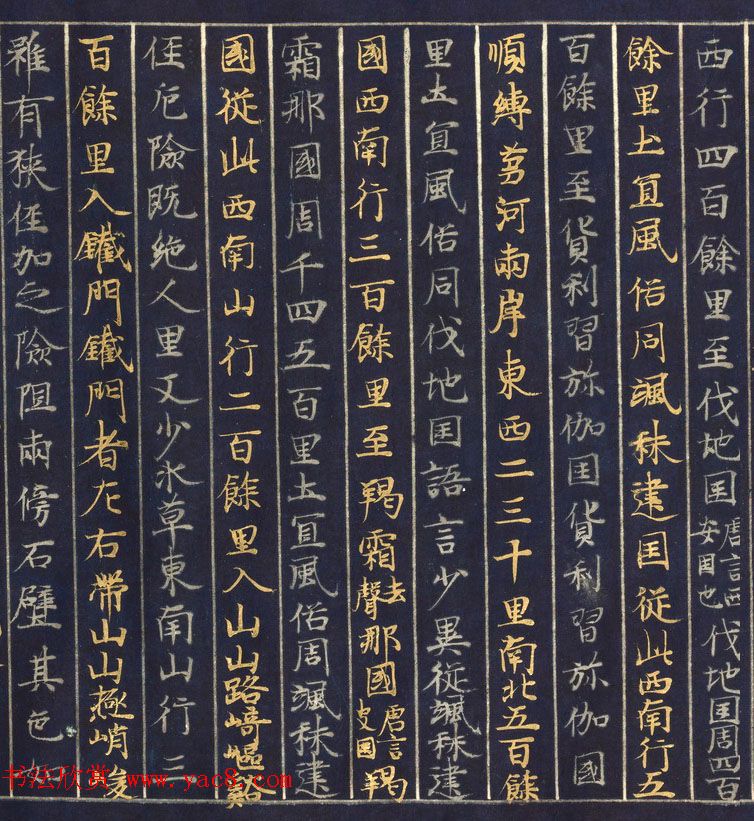 西行四百餘里至伐地国唐言西安国也伐地国周四百
餘里土宜風俗同颯秣建国従此西南行五
百餘里至貨利習弥伽国貨利習弥伽國
順縛芻河兩岸東西二三十里南北五百餘
里土宜風俗同伐地国語言少異従颯秣建
國西南行三百餘里至羯霜去聲那國唐言史国羯
霜那國周千四五百里土宜風俗周颯秣建
國従此西南山行二百餘里入山山路崎嶇谿
径危險既絶人里又少水草東南山行三
百餘里入鐵門鐵門者左右帶山山極峭峻
雖有狭径加之險阻兩傍石壁其色如
书法欣赏 www.yac8.com